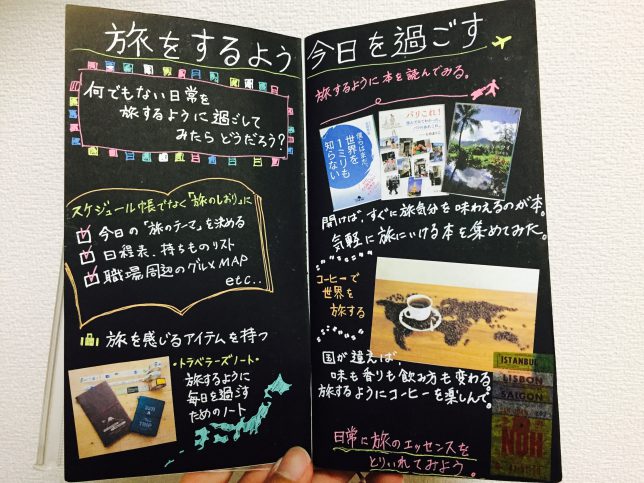 旅をするよう
何でもない日常を
旅するように過ごして
みたらどうだろう?
スケジュール帳でなく「旅のしおり」に
今日の「旅のテーマ」を決める
日程表、持ちものリスト
職場周辺のグルメMAP
etc..
旅を感じるアイテムを持つ
・トラベラーズノート・
旅するように
毎日を過ごす
ためのノート
TRIP
今日を過ごす
旅するように本を読んでみる。
僕らはまだ、
世界を
1ミリも
知らない
パリこれ!
開けば、すぐに旅気分を味わえるのが本。
気軽に旅にいける本を集めてみた。
コーヒーで
世界を
旅する
国が違えば
味も香りも飲み方も変わる。
旅するようにコーヒーを楽しんで。
ISTANBUL
LISBON
SAIGON
日常に旅のエッセンスを
とりいれてみよう。